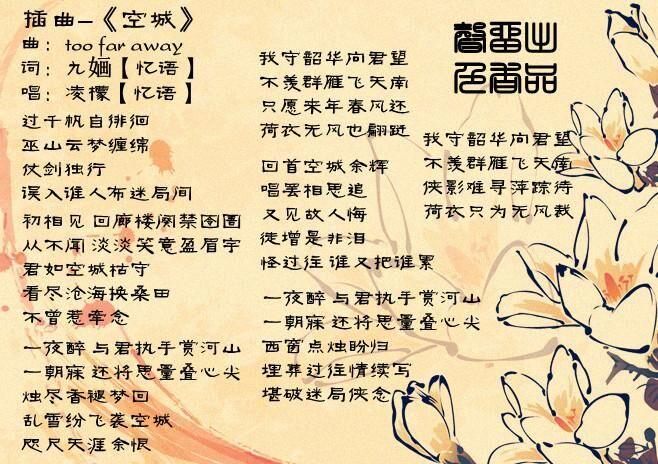 插曲—《空城》
曲：too far away
词：九婳【忆语】
唱：凌檬【忆语】
过千帆自徘徊
巫山云梦缠绵
仗剑独行
误入谁人布迷局间
初相见 回廊楼阁禁囹圄
从不闻 淡淡笑意盈眉宇
君如空城枯守
看尽沧海换桑田
不曾惹牵念
一夜醉 与君执手赏河山
一朝寐 还将思量叠心尖
烛尽香褪梦回
乱雪纷飞袭空城
咫尺天涯余恨
我守韶华向君望
不羡群雁飞天南
只愿来年春风还
荷衣无风也翩跹
回首空城余辉
唱罢相思追
又见故人悔
徒增是非泪
怪过往 谁又把谁累
一夜醉 与君执手赏河山
一朝寐 还将思量叠心尖
西窗点烛盼归
埋葬过往情续写
堪破迷局侠念
声留出
色香品
我守韶华向君望
不羡群雁飞天南
侠影难寻萍踪待
荷衣只为无风裁